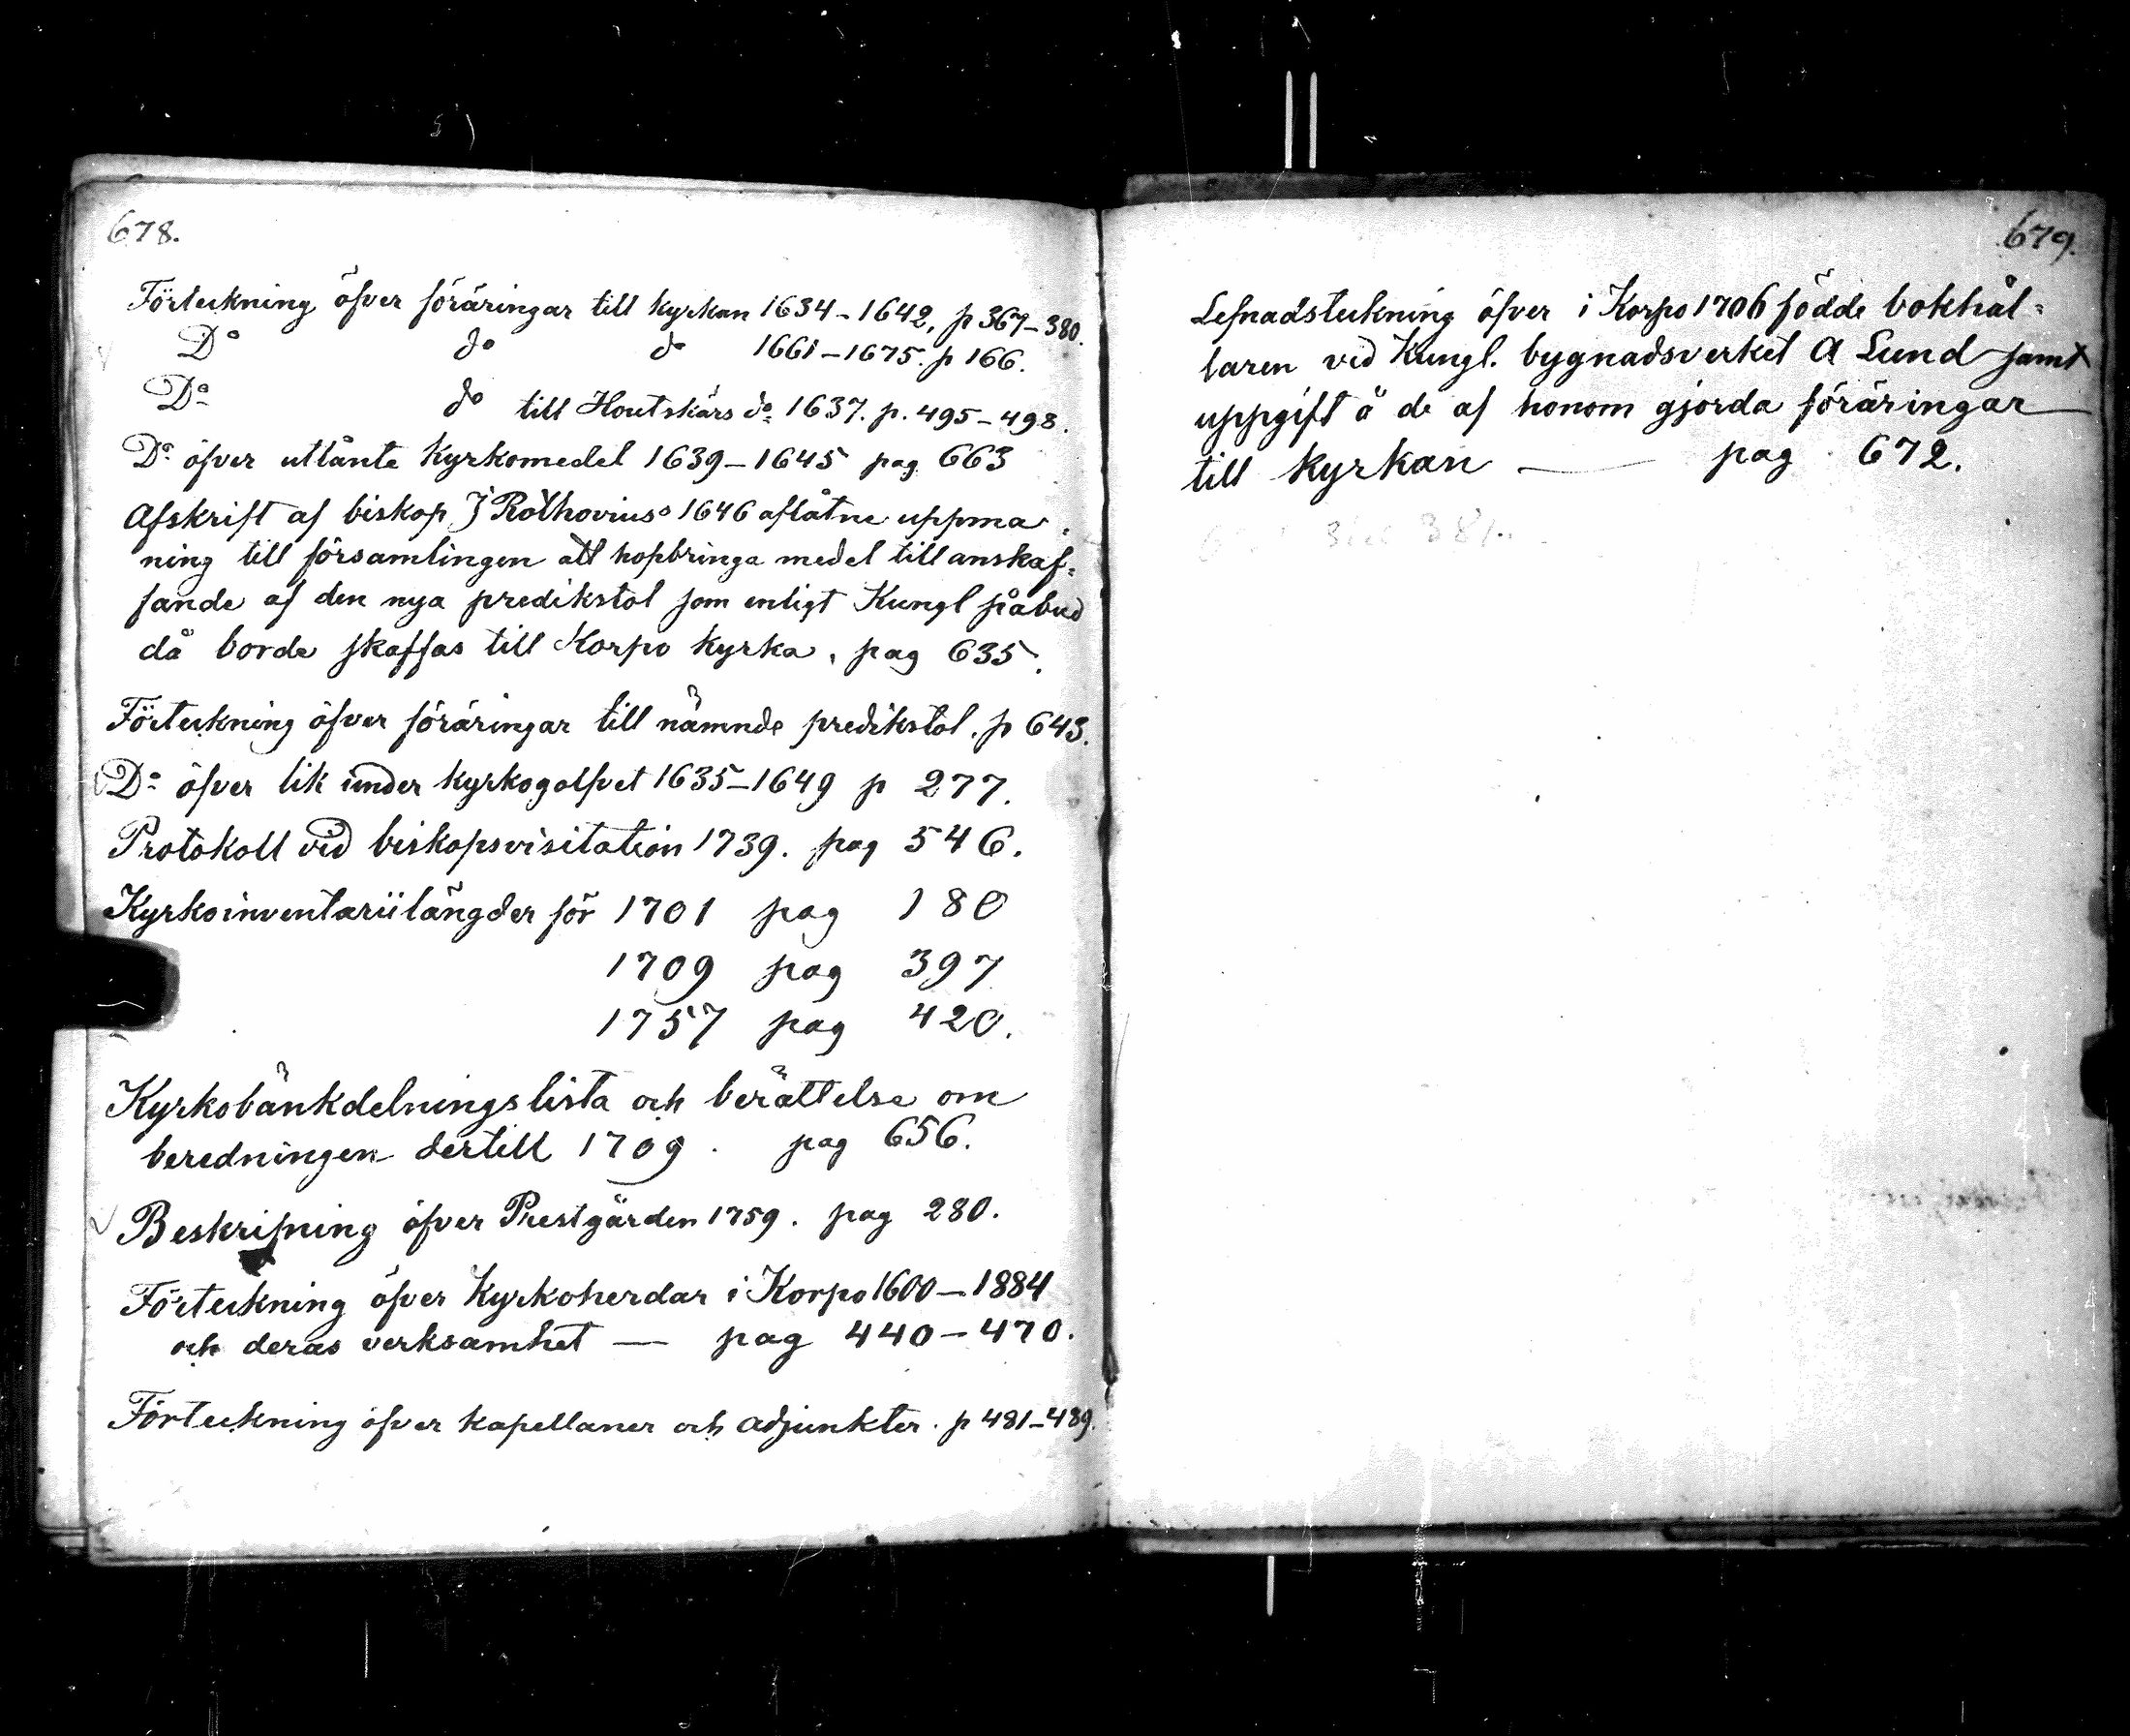 678.
Förteckning öfver föräringar till kyrkan 1634-1642, p 367-380.
Do do do 1661-1675. p 166.
Do do till Houtskärs do 1637. p. 495-498.
Do öfver utlånte kyrkomedel 1639-1645 pag 663
Afskrift af biskop J Rothovius 1646 aflåtne uppma-
ning till församlingen att hopbringa medel till anskaf-
fande af den nya predikstol som enligt Kungl påbud
då borde skaffas till Korpo kyrka, pag 635.
Förteckning öfver föräringar till nämnde predikstol. p 643.
Do öfver lik under kyrkogolfvet 1635-1649 p 277.
Protokoll vid biskopsvisitation 1739. pag 546.
Kyrkoinventariilängder för 1701 pag 180
1709 pag 397
1757 pag 420.
Kyrkobänkdelningslista och berättelse om
beredningen dertill 1709. pag 656.
Beskrifning öfver Prestgården 1759. pag 280.
Förteckning öfver Kyrkoherdar i Korpo 1600-1884
och deras verksamhet — pag 440-470.
Förteckning öfver kapellaner och adjunkter. p 481-489.
679.
Lefnadsteckning öfver i Korpo 1706 födde bokhål=
laren vid Kungl. bygnadsverket A Lund samt
uppgift å de af honom gjorda föräringar
till kyrkan — pag 672.